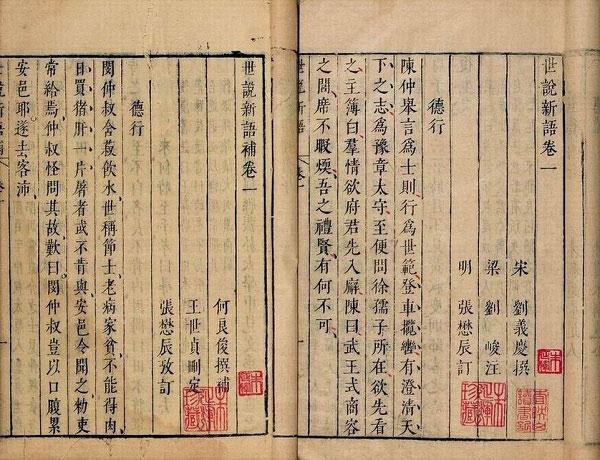 世說新語卷一
宋 劉義慶撰
梁 劉峻注
明 張懋辰訂
德行
陳仲舉言為士則行為世範登車攬轡有澄清天
下之志為豫章太守至便問徐孺子所在欲先看
之主簿白羣情欲府君先入廨陳曰武王式商容
之閭席不暇煗吾之禮賢有何不可
世說新語
卷一
世說新語補卷一
何良俊撰補
王世貞刪定
張懋辰攷訂
德行
閔仲叔含菽飲水世稱節士老病家貧不能得肉
日買猪肝一片屠者或不肯與安邑令聞之勑吏
常給焉仲叔怪問其故歎曰閔仲叔豈以口腹累
安邑耶遂去客沛
世說新語補
卷一